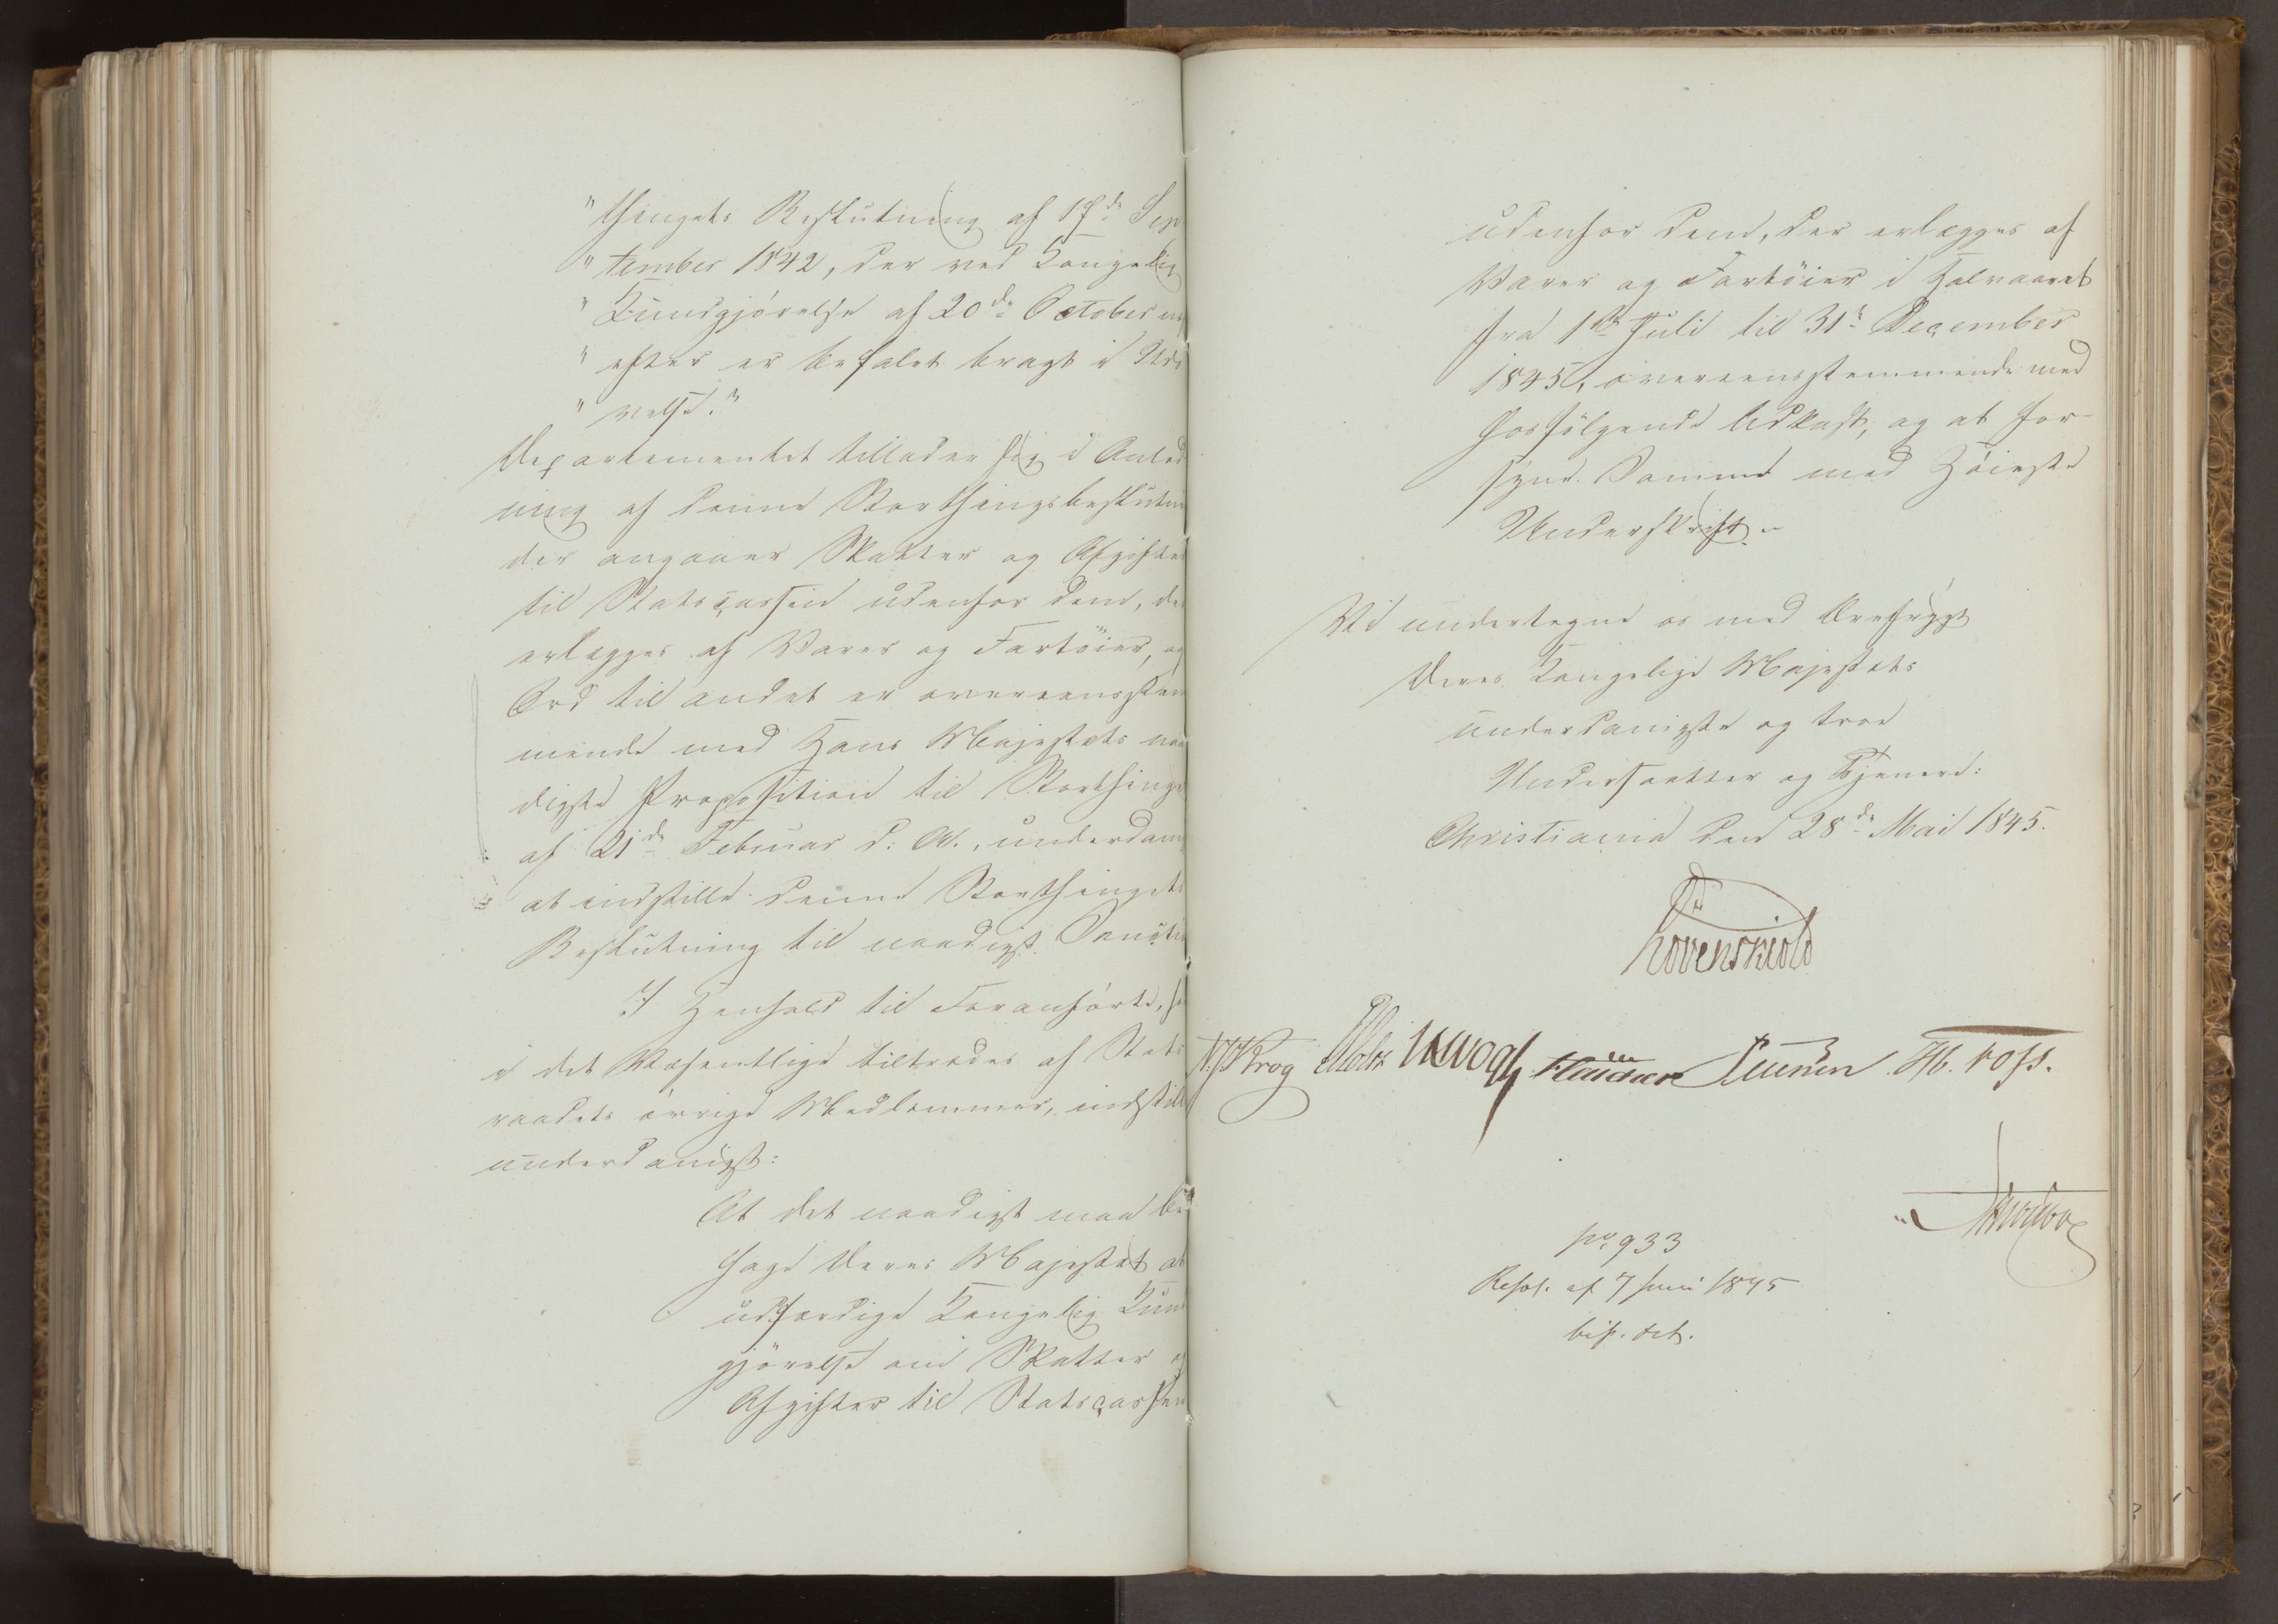 "thingets Beslutning af 17de Sep
"tember 1842, der ved Kongelig
"Kundgjørelse af 20de October
"efter er befalet bragt i Udø
"velse."
Departementet tillader sig i Anled
ning af denne Storthingsbeslutni
der angaaer Skatter og Afgifter
til Statscassen udenfor dem, de
erlægges af Varer og Fartöier, og
Ord til andet er overeensstem
mende med Hans Majestæts naa
digste Proposition til Storthinge
af 21de Februar d: A., underdan
at indstille denne Storthingets
Beslutning til naadigst Sancti
I Henhold til Foranførte, 
i det Væsentlige tiltrædes af Stats
raadets øvrige Medlemmer, indstill
underdanigst:
At det naadigst maa be
hage Deres Majestæt at
udfærdige Kongelig Kund
gjörelse om Skatter og
Afgifter til Statscassen
udenfor dem, der erlægges af
Varer og Fartöier i Halvaaret
fra 1ste Juli til 31te December
1845, overeensstemmende med
hosfölgende Udkast, og at for-
syne Samme med Höieste
Underskrift.
Vi undertegne os med Ærefrygt
Deres Kongelige Majestæts
underdanigste og troe
Undersaatter og Tjenere:
Christiania den 28de Mai 1845.
Løvenskiold
Krog Holst Vogt Petersen Voss.
No 933
Resol. af 7 Juni 1845
bif. det.